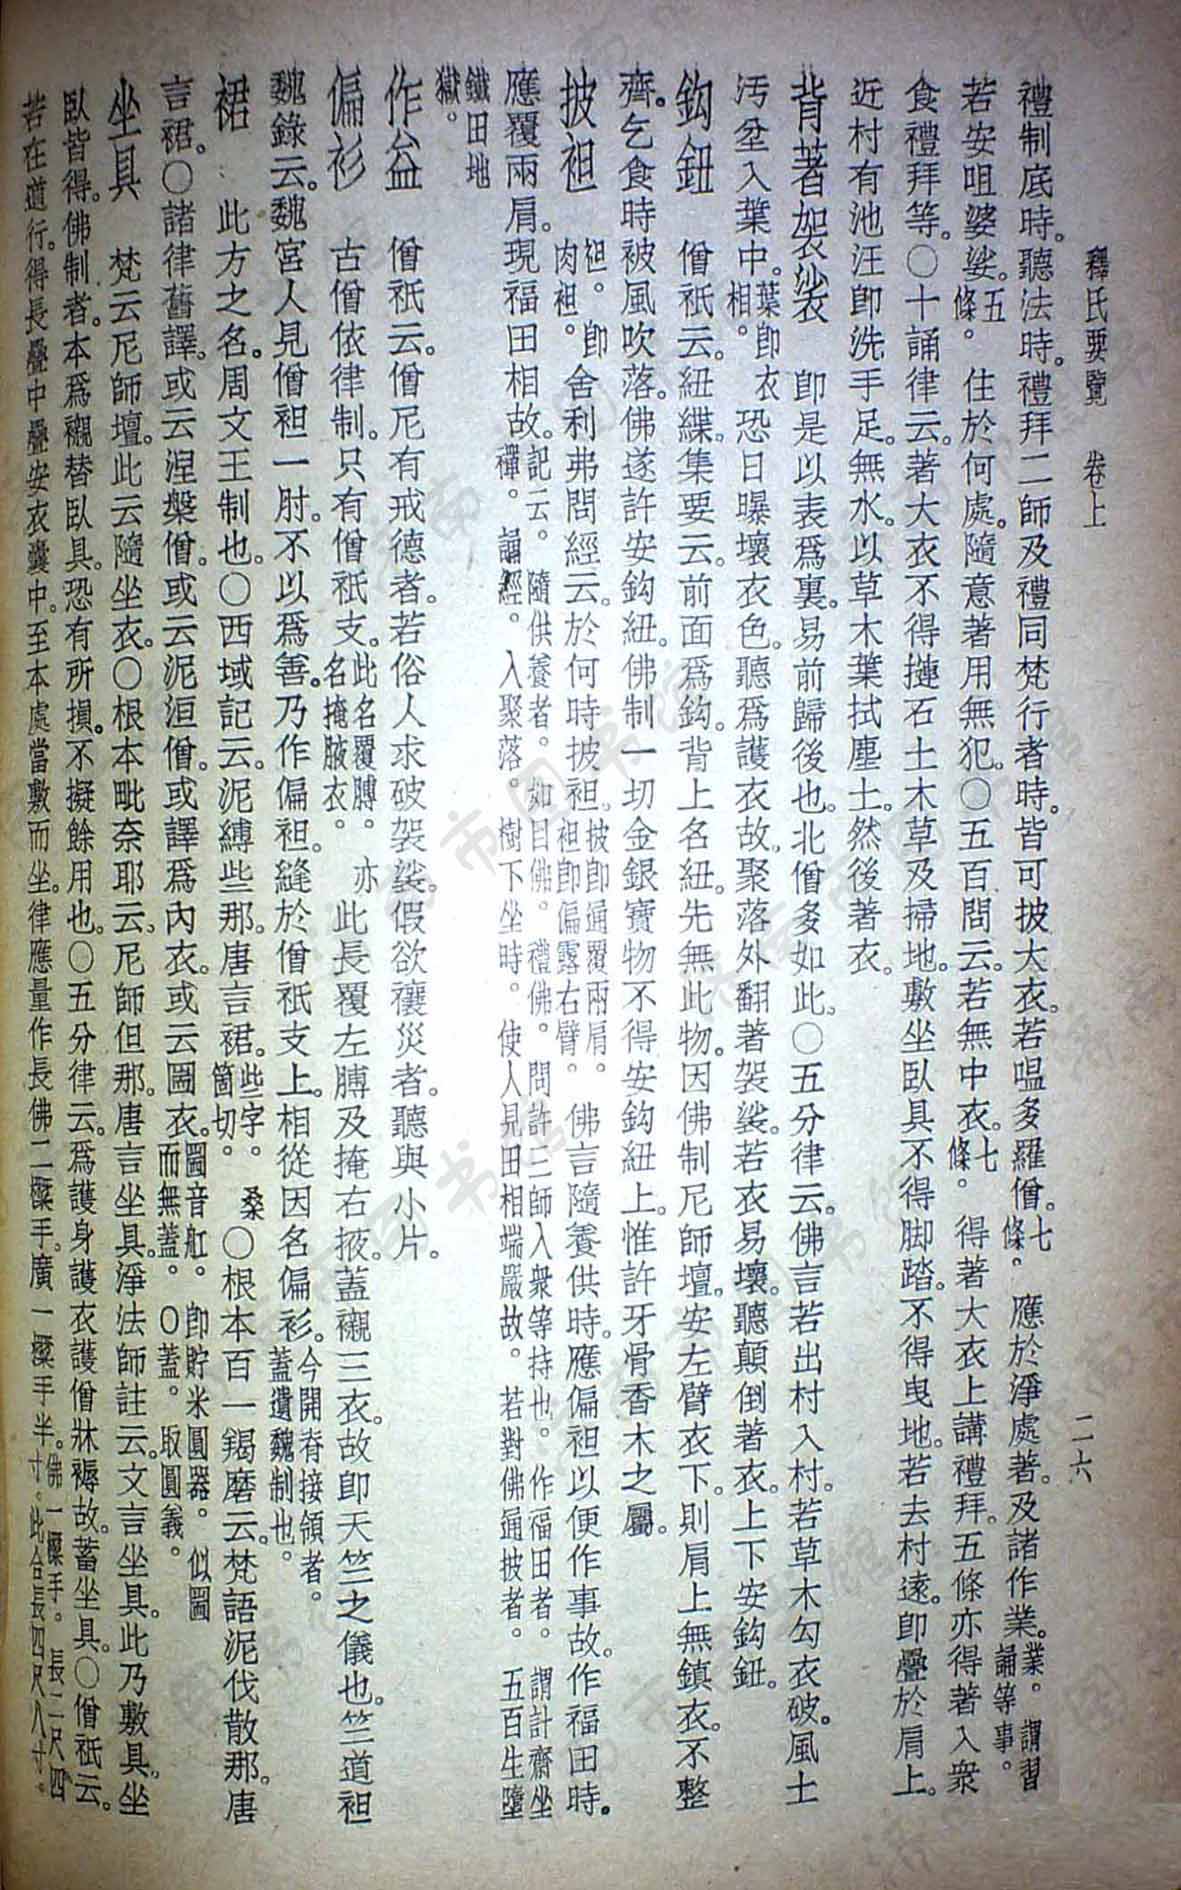 釋氏要覽　卷上　二六
禮制底時。聽法時。禮拜二師及禮同梵行者時。皆可披大衣。若嗢多羅僧。七條。應於淨處著。及諸作業。業。謂習誦等事。
若安呾婆娑。五條。住於何處。隨意著用無犯。〇五百問云。若無中衣。七條。得著大衣上講禮拜。五條亦得著入衆
食禮拜等。〇十誦律云。著大衣不得摙石土木草及掃地。敷坐臥具不得脚踏。不得曳地。若去村遠。卽疊於肩上。
近村有池汪卽洗手足。無水。以草木葉拭塵土。然後著衣。
背著袈裟衣　卽是以表爲裏。易前歸後也。北僧多如此。〇五分律云。佛言若出村入村。若草木勾衣破。風土
汚坌入葉中。葉卽衣相。恐日曝壞衣色。聽爲護衣故。聚落外翻著袈裟。若衣易壞。聽顛倒著衣。上下安鈎鈕。
鈎鈕　僧祇云。紐緤。集要云。前面爲鈎。背上名紐。先無此物。因佛制尼師壇。安左臂衣下。則肩上無鎮衣。不整
齊。乞食時被風吹落。佛遂許安鈎紐。佛制一切金銀寶物不得安鈎紐上。惟許牙骨香木之屬。
披袒　袒。卽肉袒。舍利弗問經云。於何時披袒。披卽通覆兩肩。袒卽偏露右臂。佛言隨養供時。應偏袒以便作事故。作福田時。
應覆兩肩。現福田相故。記云。隨供養者。如目佛。禮佛。問許二師入衆等持也。作福田者。謂計齋坐禪。誦經。入聚落。樹下坐時。使人見田相端嚴故。若對佛通披者。五百生墮
鐵田地獄。
作益　僧祇云。僧尼有戒德者。若俗人求破袈裟。假欲禳災者。聽與小片。
偏衫　古僧依律制。只有僧祇支。此名覆膊。亦名掩腋衣。此長覆左膊及掩右掖。蓋襯三衣。故卽天竺之儀也。竺道祖
魏錄云。魏宮人見僧袒一肘。不以爲善。乃作偏袒。縫於僧祇支上。相從因名偏衫。今開脊接領者。蓋遺魏制也。
裙　此方之名。周文王制也。〇西域記云。泥縛些那。唐言裙。些字。桑箇切。〇根本百一羯磨云。梵語泥伐散那。唐
言裙。〇諸律舊譯。或云涅槃僧。或云泥洹僧。或譯爲內衣。或云圌衣。圌音舡。卽貯米圓器。似圌而無蓋。〇蓋。取圓義。
坐具　梵云尼師壇。此云隨坐衣。〇根本毗奈耶云。尼師但那。唐言坐具。淨法師註云。文言坐具。此乃敷具。坐
臥皆得。佛制者。本爲襯替臥具。恐有所損。不擬餘用也。〇五分律云。爲護身護衣護僧牀褥故。蓄坐具。〇僧祇云。
若在道行。得長疊中疊安衣囊中。至本處當敷而坐。律應量作長佛二磔手。廣一磔手半。佛一磔手。長二尺四寸。此合長四尺八寸。